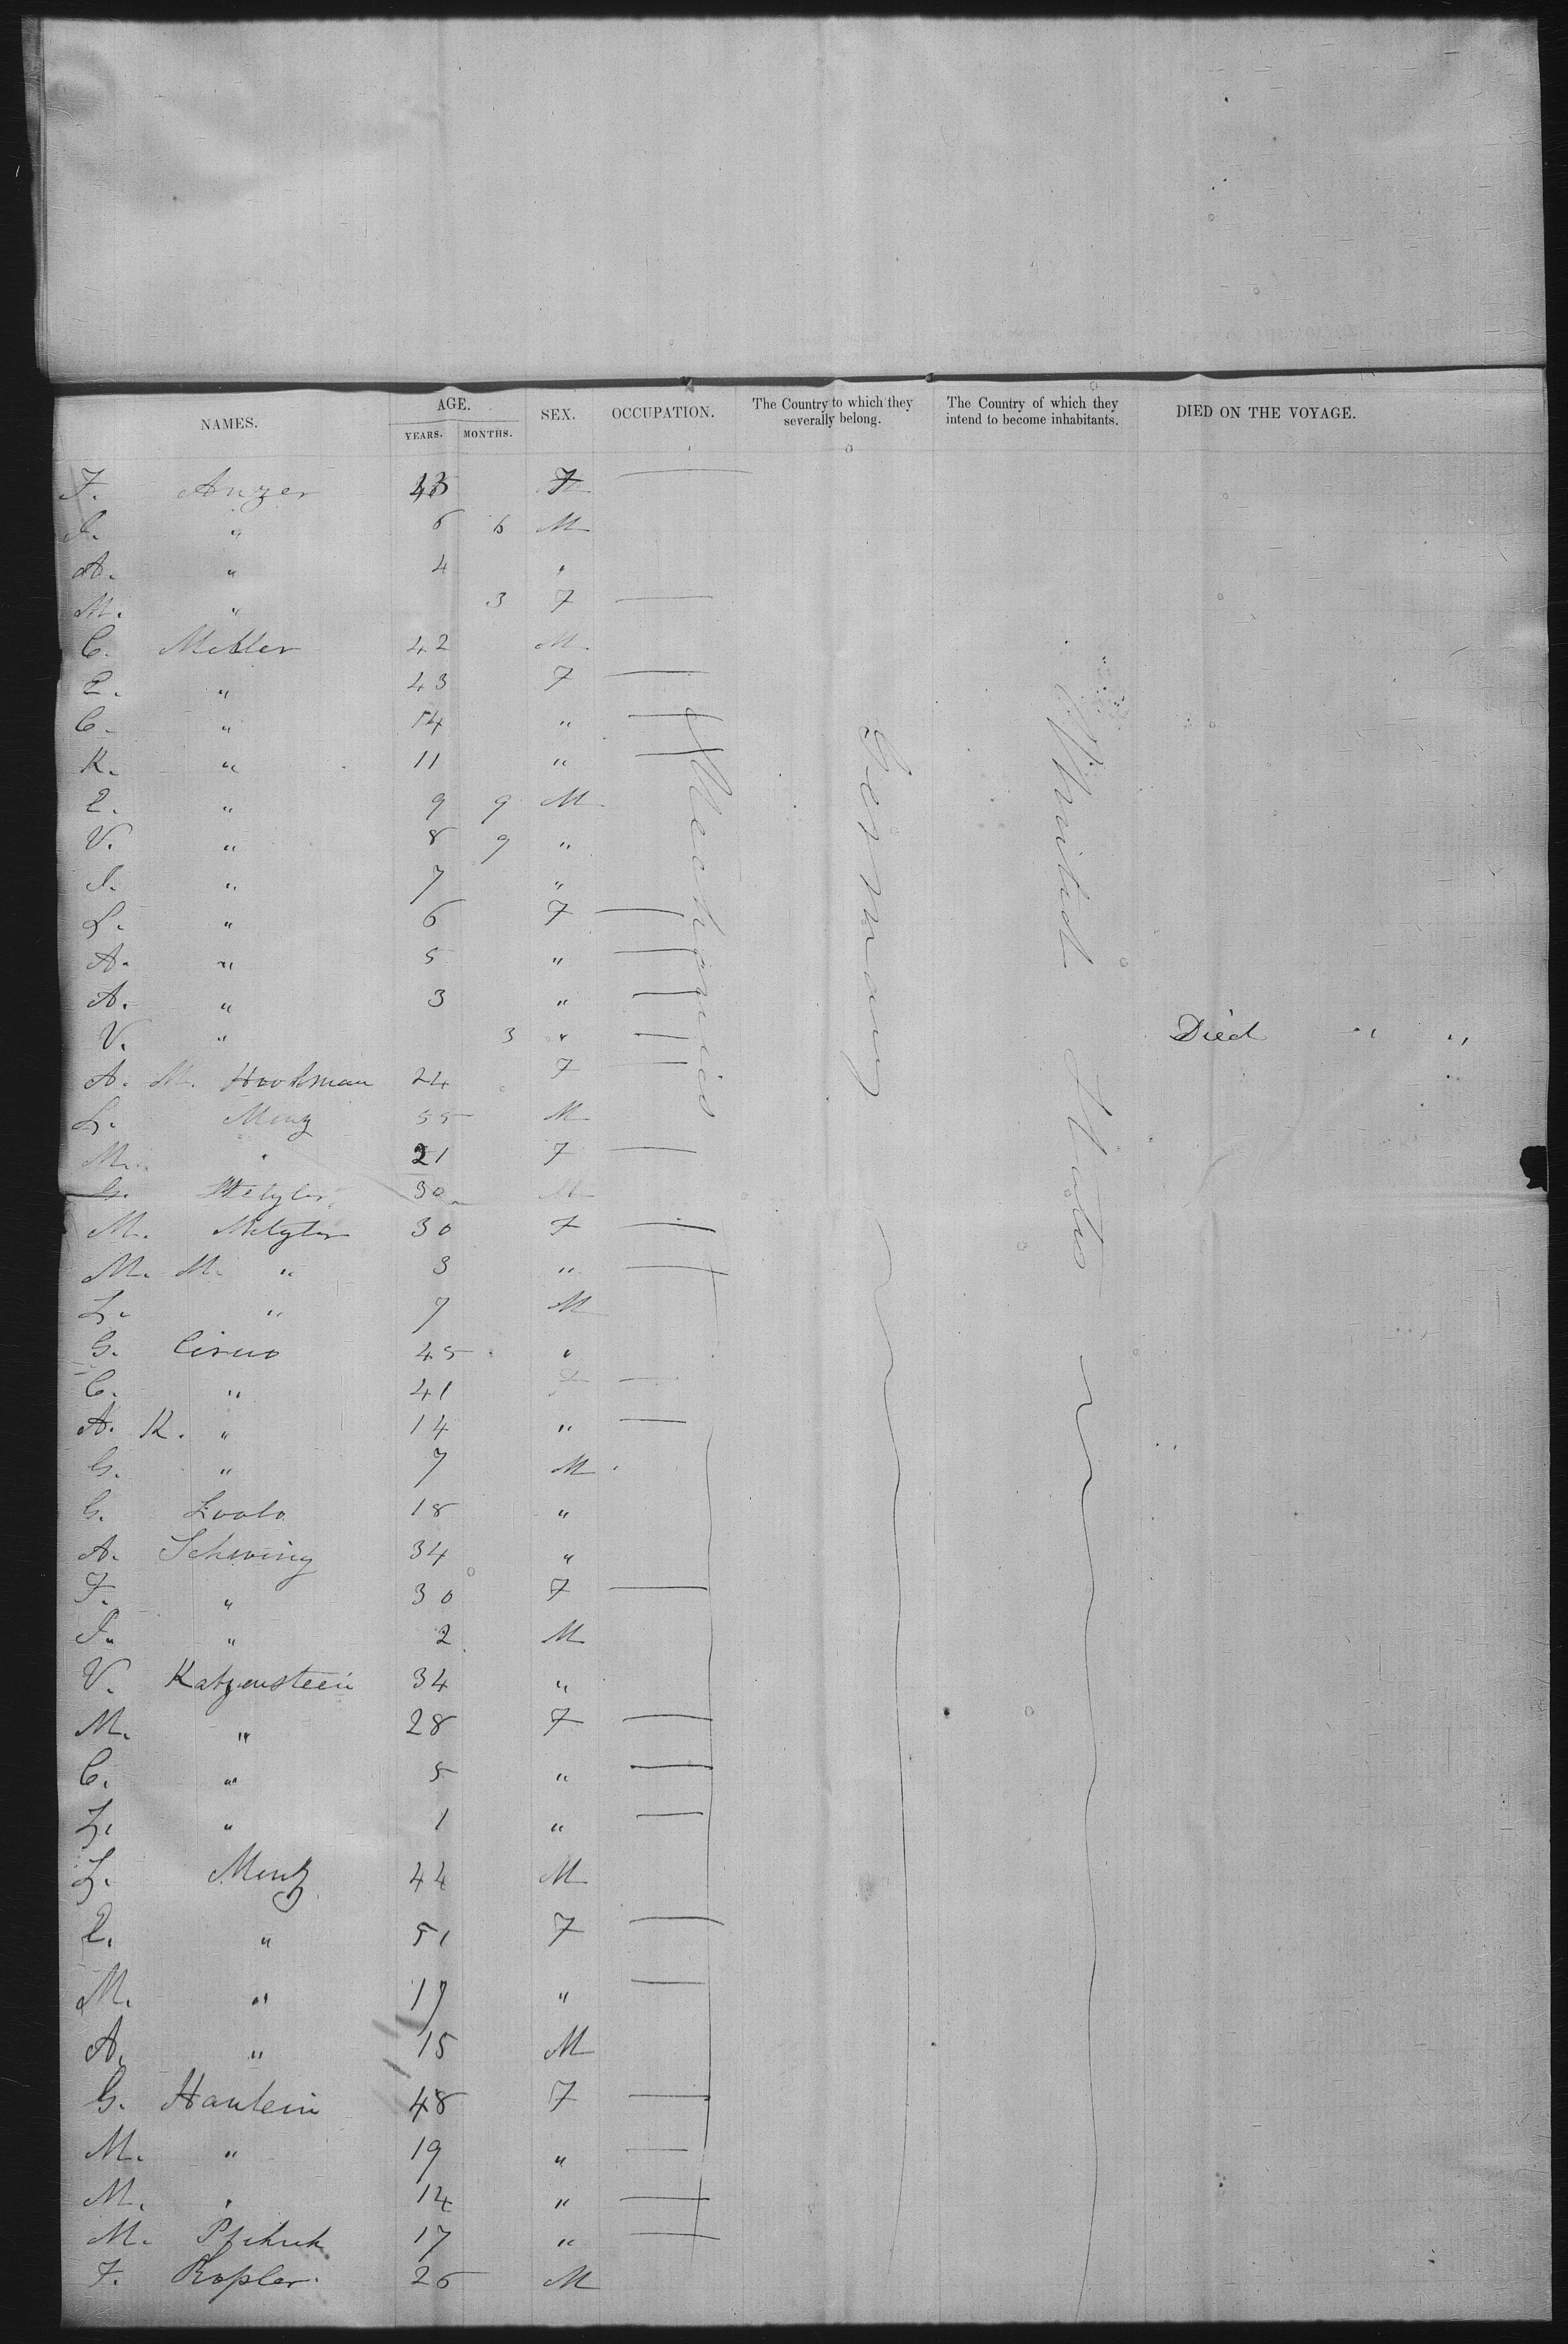 NAMES. AGE. YEARS. MONTHS. SEX. OCCUPATION. The Country to which they severally belong. The Country of which they intend to become inhabitants. DIED ON THE VOYAGE.
F. Anzer F
" 6 6 M
A. " 4 "
M. " 3 F —
C. Miller 42 M
E. " 43 F —
C. " 14 " —
K. " 11 " —
E. " 9 9 M
V. " 8 9 "
J. " 7 "
L. " 6 F —
A. " 5 " —
A. " 3 " —
V. " 3 " — Died " "
A. M. Hoohman 24 F —
L. Menz 55 M
M. " 21 F —
G. Metzler 30 M
M. Metzler 30 F —
M. M. " 3 " —
L. " 7 M
G. 45 "
C. " 41 F —
A. K. " 14 " —
G. " 7 M
G. 18 "
A. Schwing 34 "
F. " 30 F —
F. " 2 M
V. Katzenstein 34 "
M. " 28 F —
C. " 5 " —
L. " 1 " —
L. Mentz 44 M
E. " 51 F —
M. " 17 " —
A. " 15 M
G. Hanlein 48 F —
M. " 19 " —
M. " 14 " —
M. 17 " —
F. Kopler 26 M
Mechanics
Germany
United States